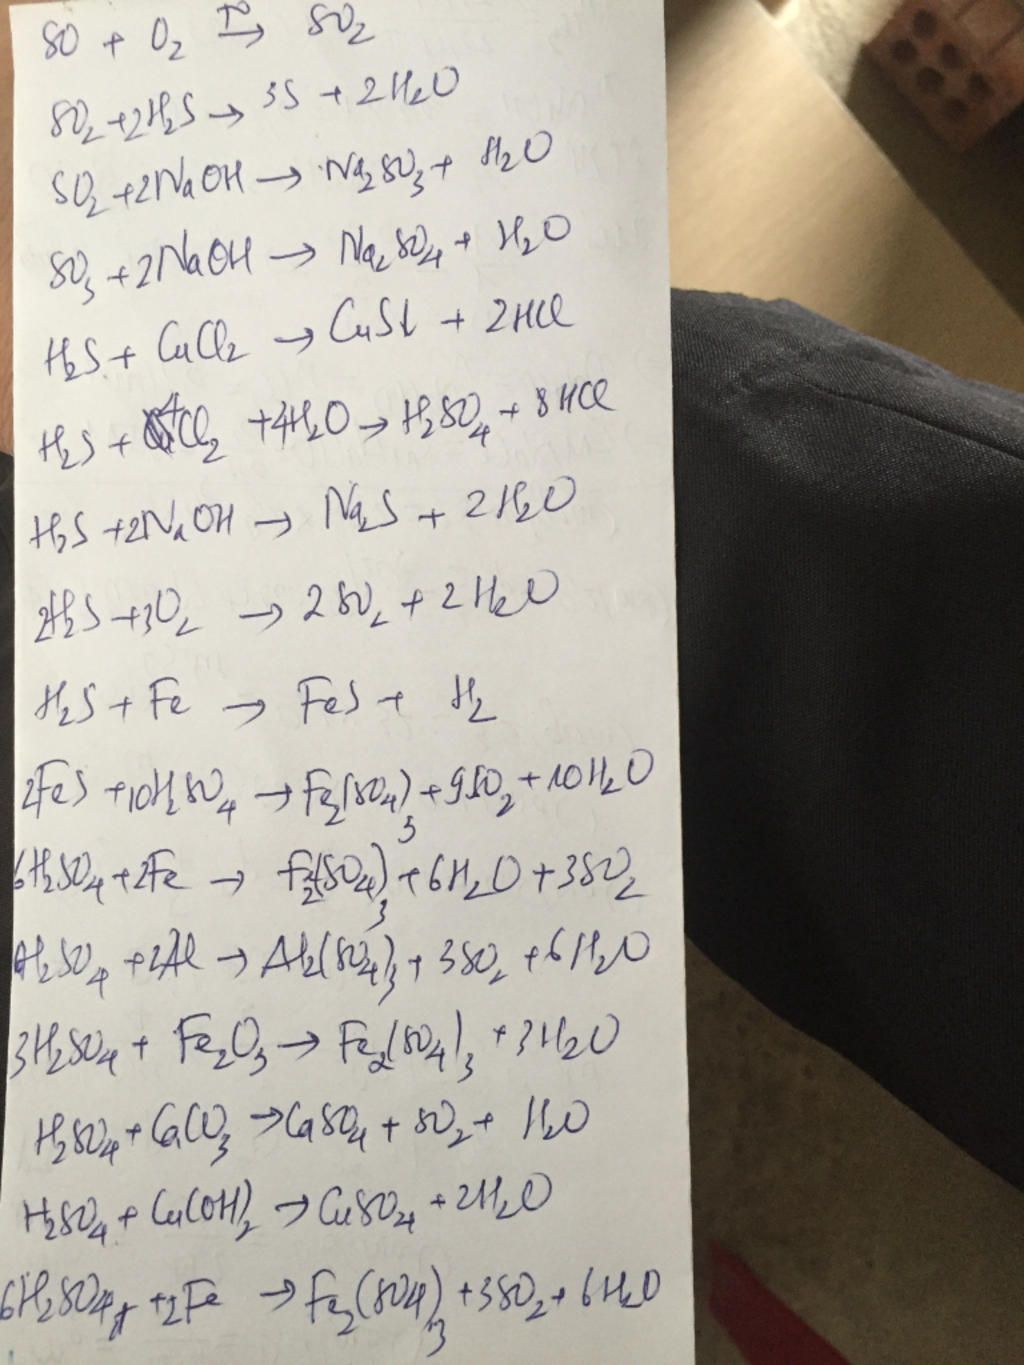 SO + O₂ →(t°) SO₂
SO₂ + 2H₂S → 3S + 2H₂O
SO₂ + 2NaOH → Na₂SO₃ + H₂O
SO₃ + 2NaOH → Na₂SO₄ + H₂O
H₂S + CuCl₂ → CuS↓ + 2HCl
H₂S + 4Cl₂ + 4H₂O → H₂SO₄ + 8HCl
H₂S + 2NaOH → Na₂S + 2H₂O
2H₂S + 3O₂ → 2SO₂ + 2H₂O
H₂S + Fe → FeS + H₂
2FeS + 10H₂SO₄ → Fe₂(SO₄)₃ + 9SO₂ + 10H₂O
6H₂SO₄ + 2Fe → Fe₂(SO₄)₃ + 6H₂O + 3SO₂
H₂SO₄ + 2Al → Al₂(SO₄)₃ + 3SO₂ + 6H₂O
3H₂SO₄ + Fe₂O₃ → Fe₂(SO₄)₃ + 3H₂O
H₂SO₄ + CaCO₃ → CaSO₄ + SO₂ + H₂O
H₂SO₄ + Cu(OH)₂ → CuSO₄ + 2H₂O
6H₂SO₄ + 2Fe → Fe₂(SO₄)₃ + 3SO₂ + 6H₂O